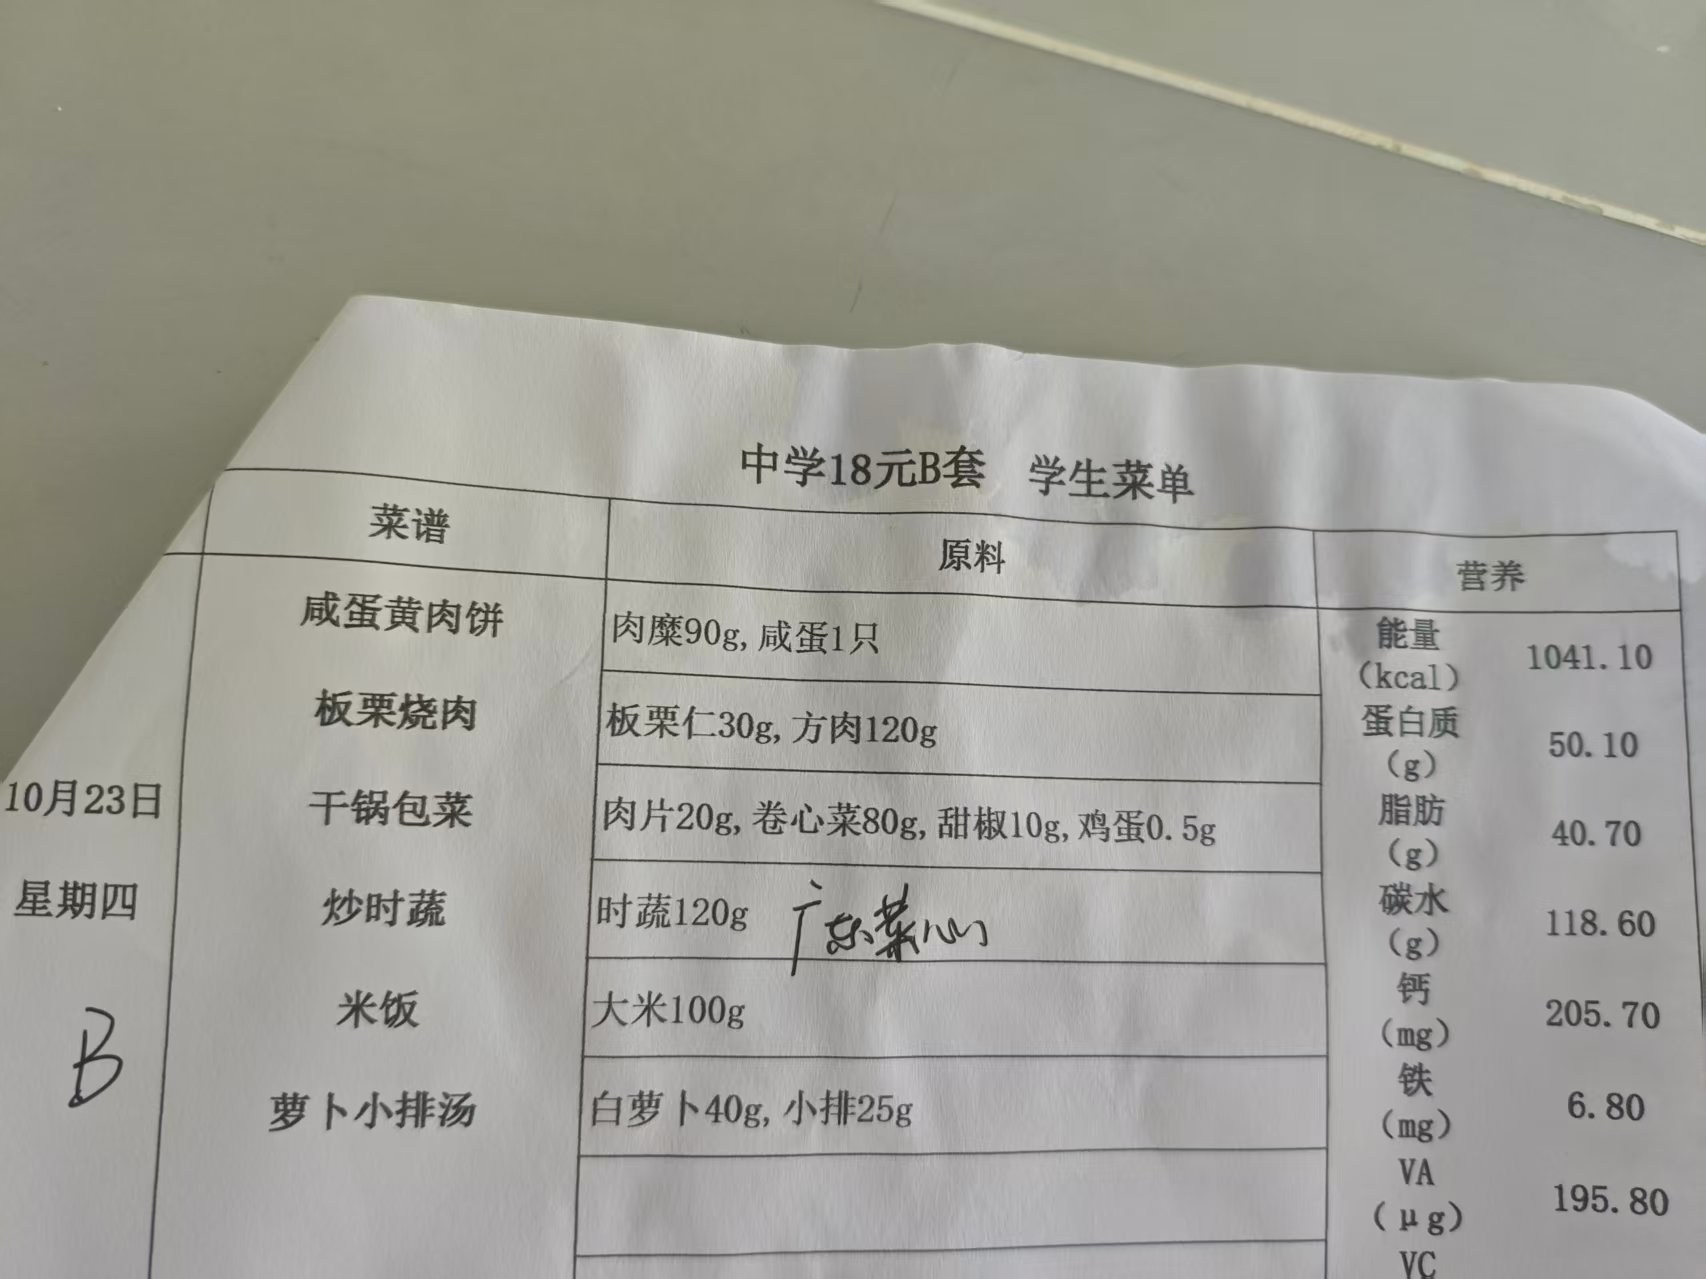 中学18元B套 学生菜单
菜谱 原料 营养
咸蛋黄肉饼 肉糜90g, 咸蛋1只
板栗烧肉 板栗仁30g, 方肉120g
干锅包菜 肉片20g, 卷心菜80g, 甜椒10g, 鸡蛋0.5g
炒时蔬 时蔬120g 广东菜心
米饭 大米100g
萝卜小排汤 白萝卜40g, 小排25g
10月23日
星期四
B
能量(kcal) 1041.10
蛋白质(g) 50.10
脂肪(g) 40.70
碳水(g) 118.60
钙(mg) 205.70
铁(mg) 6.80
VA(μg) 195.80
VC